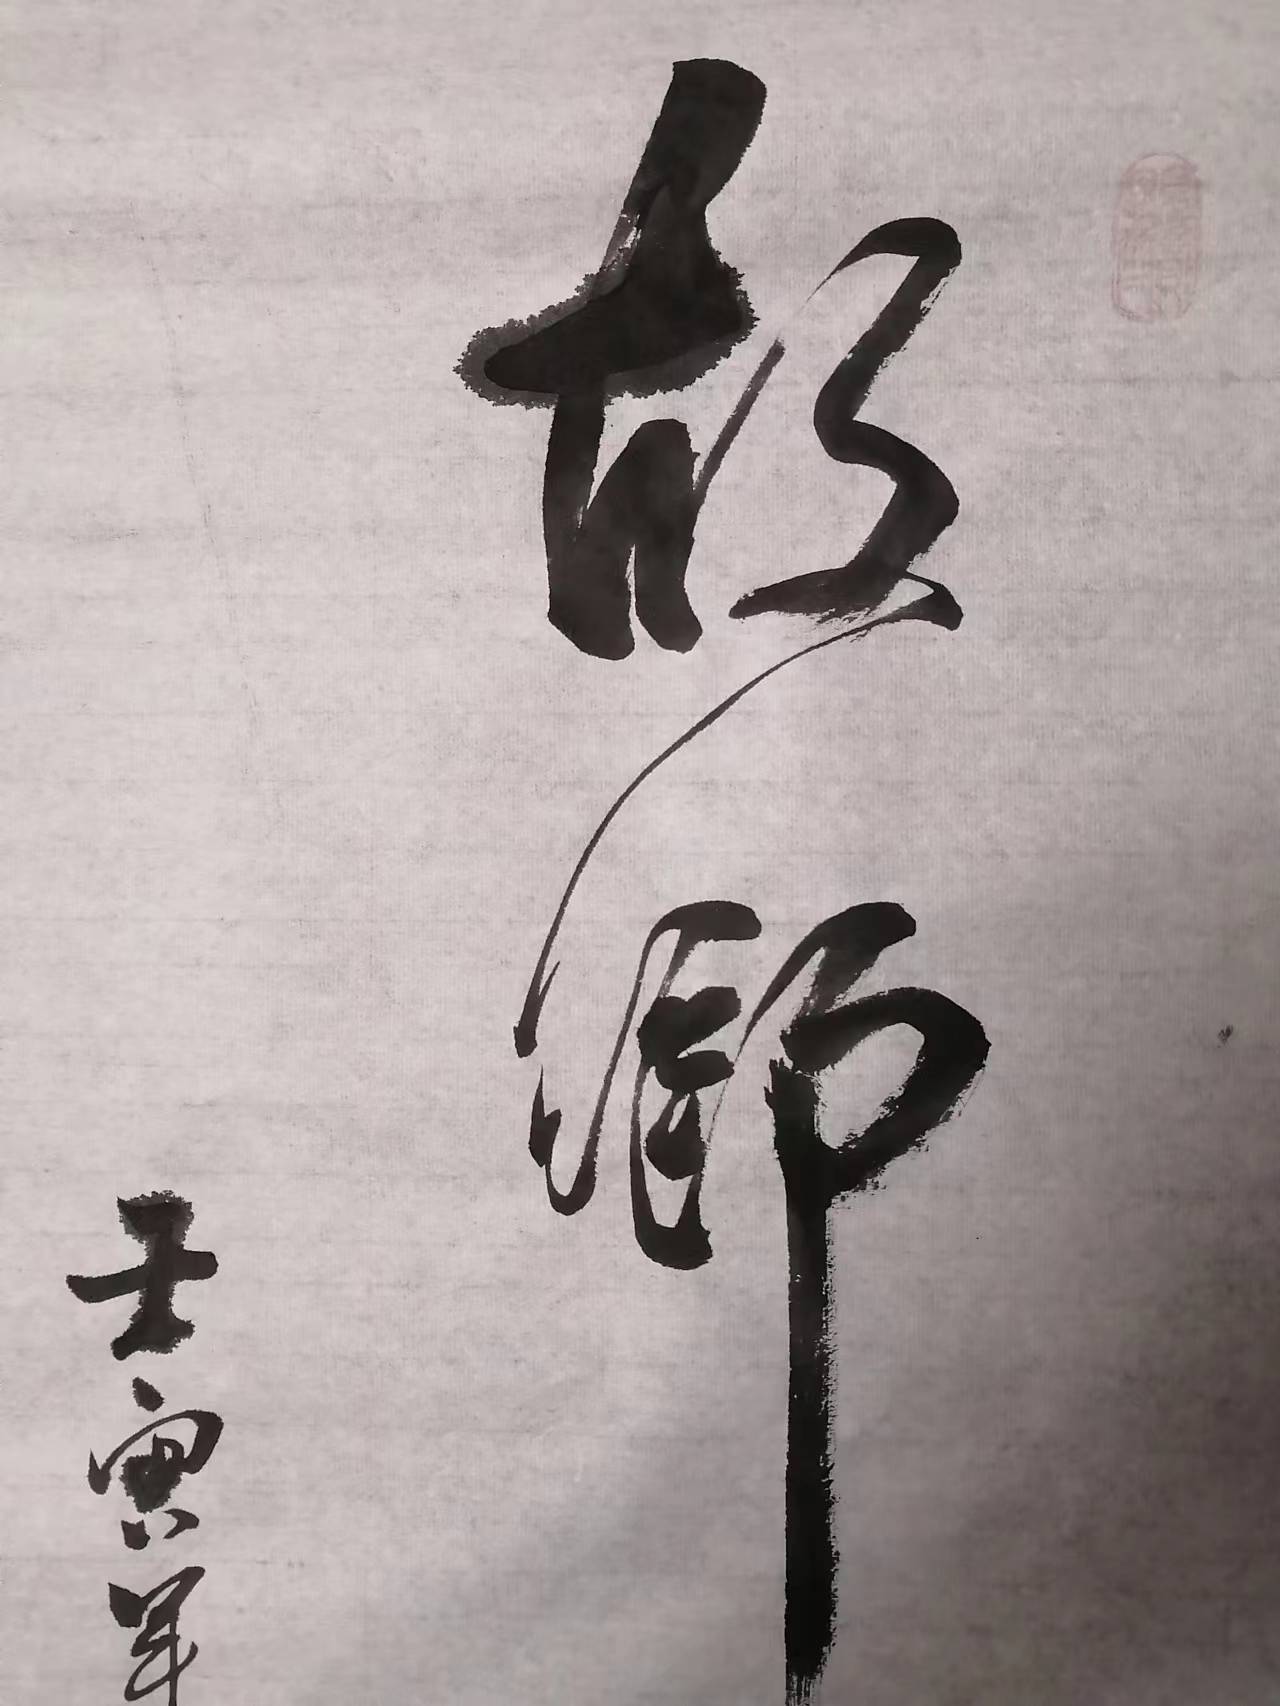 故鄉
壬寅年